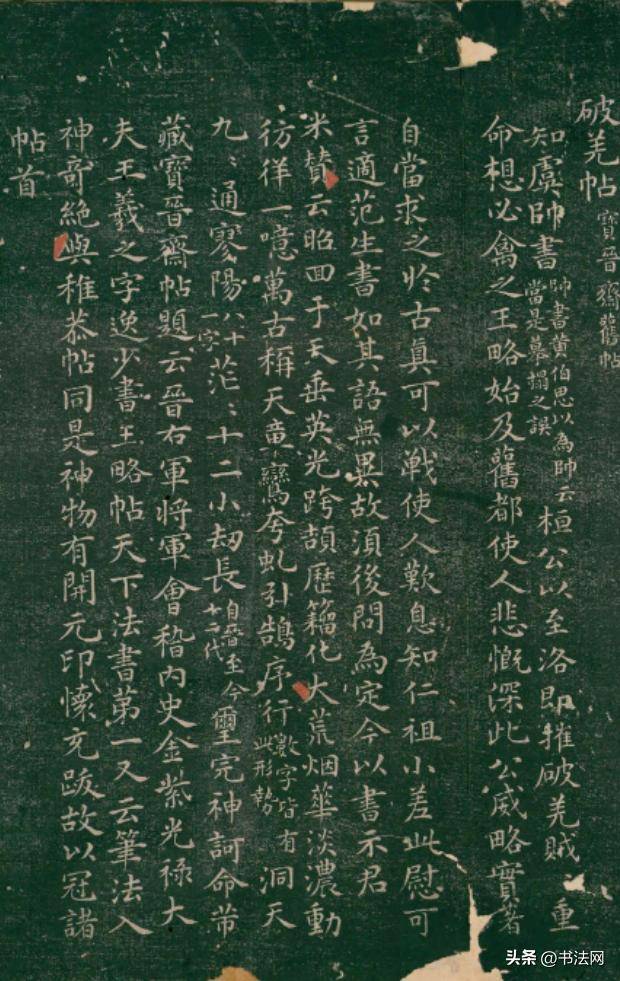 破羌帖 寶晉齋舊帖
知虞帥書 帥書黃伯思以為帥云當是摹搨之誤 桓公以至洛即摧破羌賊:重
命想必禽之王略始及舊都使人悲慨深此公威略實著
自當求之於古真可以戰使人歎息知仁祖小差此慰可
言適范生書如其語無異故須後問為定今以書示君
米贊云昭回于天垂英光跨頡歷籀化大荒烟華淡濃動
彷徉一噫萬古稱天章鸞夸虬引鵠序行 數字皆有此形勢 洞天
九:通寥陽 八十一字 茫:十二小劫長 自晉至今十二代 璽完神訶命芾
藏寶晉齋帖題云晉右軍將軍會稽内史金紫光祿大
夫王羲之字逸少書王略帖天下法書第一又云筆法入
神奇絕與稚恭帖同是神物有開元印懷充跋故以冠諸
帖首
头条 @书法网